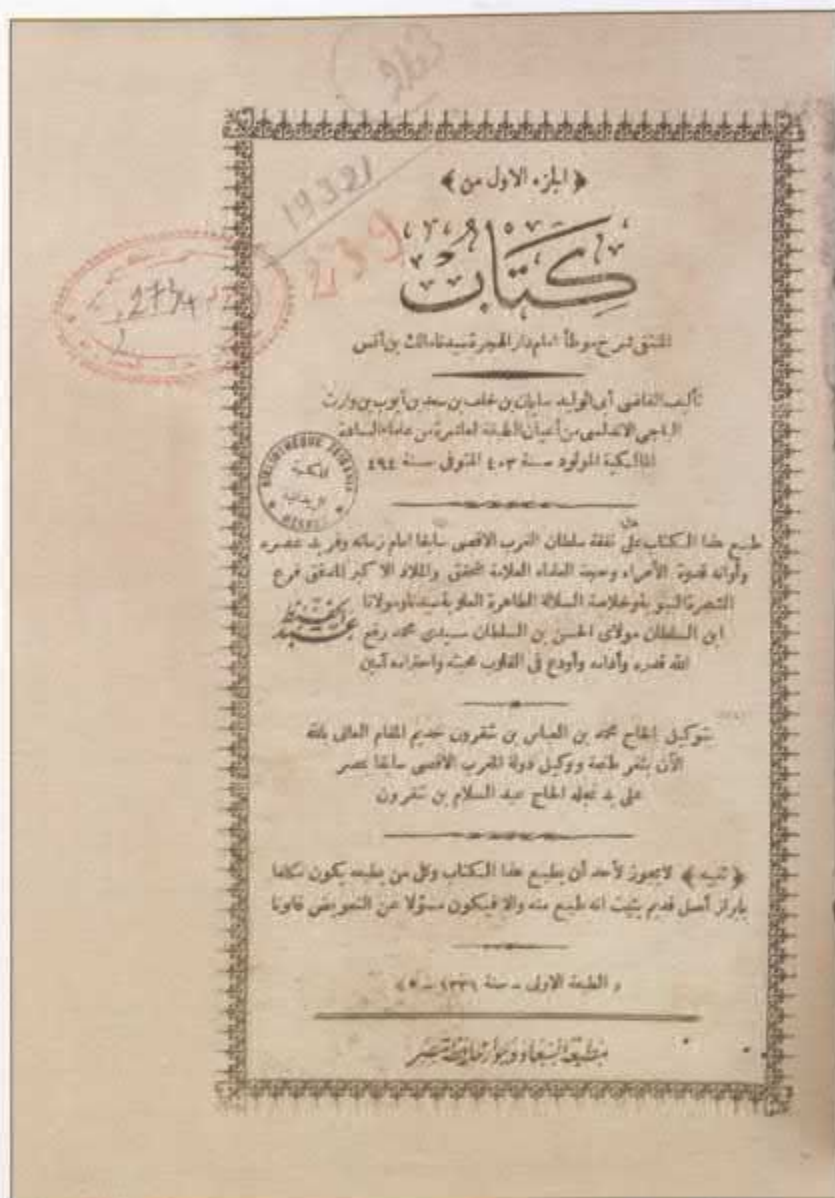 263
19321
2739
2734
﴿ الجزء الاول من ﴾
كتاب
المنتقى شرح موطأ امام دار الهجرة سيدنا مالك بن أنس
تأليف القاضى أبى الوليد سليمان بن خلف بن سعد بن أيوب بن وارث
الباجى الاندلسى من أعيان الطبقة العاشرة من علماء السادة
المالكية المولود سنة ٤٠٣ المتوفى سنة ٤٩٤
BIBLIOTHÈQUE ZEIDANIA
المكتبة
الزيدانية
طبع هذا الكتاب على نفقة سلطان المغرب الاقصى سابقا امام زمانه وفريد عصره
وأوانه قدوة الأمراء وجهبذ العلماء العلامة المحقق والملاذ الاكبر المدقق فرع
الشجرة النبوية وخلاصة السلالة الطاهرة العلوية سيدنا ومولانا
عبد الحفيظ
ابن السلطان مولاى الحسن بن السلطان سيدى محمد رفع
الله قدره وأدامه وأودع فى القلوب محبته واحترامه آمين
بتوكيل الحاج محمد بن العباس بن شقرون خديم المقام العالى بالله
الآن بثغر طنجة ووكيل دولة المغرب الاقصى سابقا بمصر
على يد نجله الحاج عبد السلام بن شقرون
﴿ تنبيه ﴾ لا يجوز لأحد أن يطبع هذا الكتاب وكل من يطبعه يكون مكلفا
بابراز أصل قديم يثبت انه طبع منه والا فيكون مسؤلا عن التعويض قانونا
﴿ الطبعة الاولى ـ سنة ١٣٣١ ـ ه ﴾
مطبعة السعادة بجوار محافظة مصر